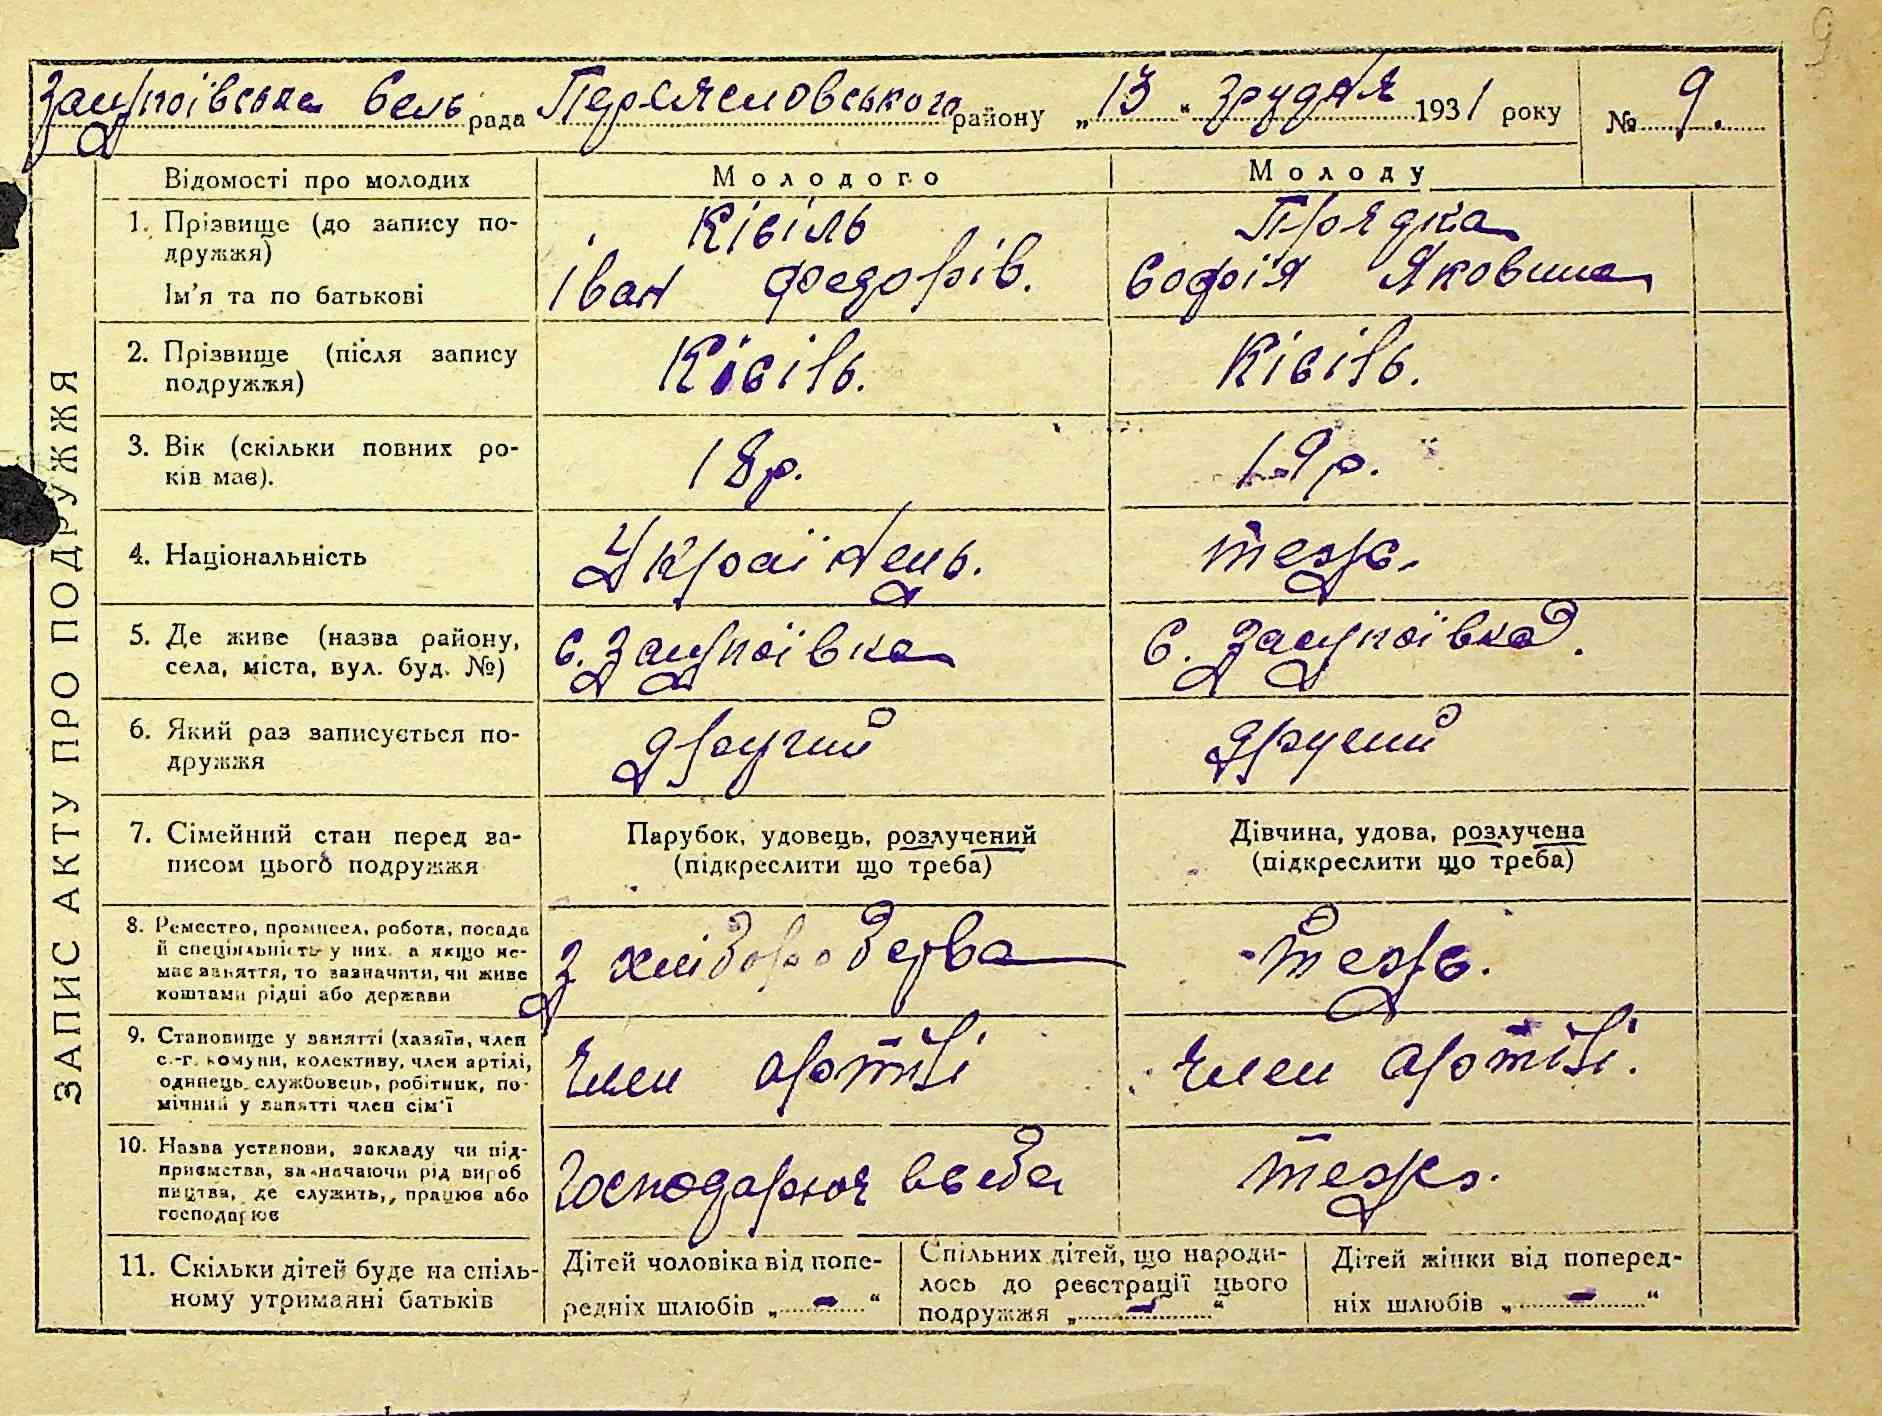 9
Зацупоівська Сель рада Переяславського району „ 13 “ Грудня 1931 року № 9.
ЗАПИС АКТУ ПРО ПОДРУЖЖЯ
Відомості про молодих Молодого Молоду
1. Прізвище (до запису по- Кісіль Прядка
дружжя)
Ім'я та по батькові Іван Федорів. Софія Яковина
2. Прізвище (після запису Кісіль. Кісіль.
подружжя)
3. Вік (скільки повних ро- 18 р. 19 р.
ків має).
4. Національність Українець. теж.
5. Де живе (назва району, с. Зацупоівка с. Зацупоівка.
села, міста, вул. буд. №)
6. Який раз записується по- другий другий
дружжя
7. Сімейний стан перед за- Парубок, удовець, розлучений Дівчина, удова, розлучена
писом цього подружжя (підкреслити що треба) (підкреслити що треба)
8. Ремество, промисел, робота, посада
й спеціяльність у них, а якщо не- З хліборобства теж.
має заняття, то зазначити, чи живе
коштами рідні або держави
9. Становище у занятті (хазяїн, член
с.-г. комуни, колективу, член артілі, Член артілі Член артілі.
одинець, службовець, робітник, по-
мічний у занятті член сім'ї
10. Назва установи, закладу чи під-
приємства, зазначаючи рід вироб Господарює в себе теж.
ництва, де служить, працює або
господарює
11. Скільки дітей буде на спіль- Дітей чоловіка від попе- Спільних дітей, що народи- Дітей жінки від поперед-
ному утриманні батьків редніх шлюбів „ - “ лось до реєстрації цього ніх шлюбів „ - “
подружжя „ - “